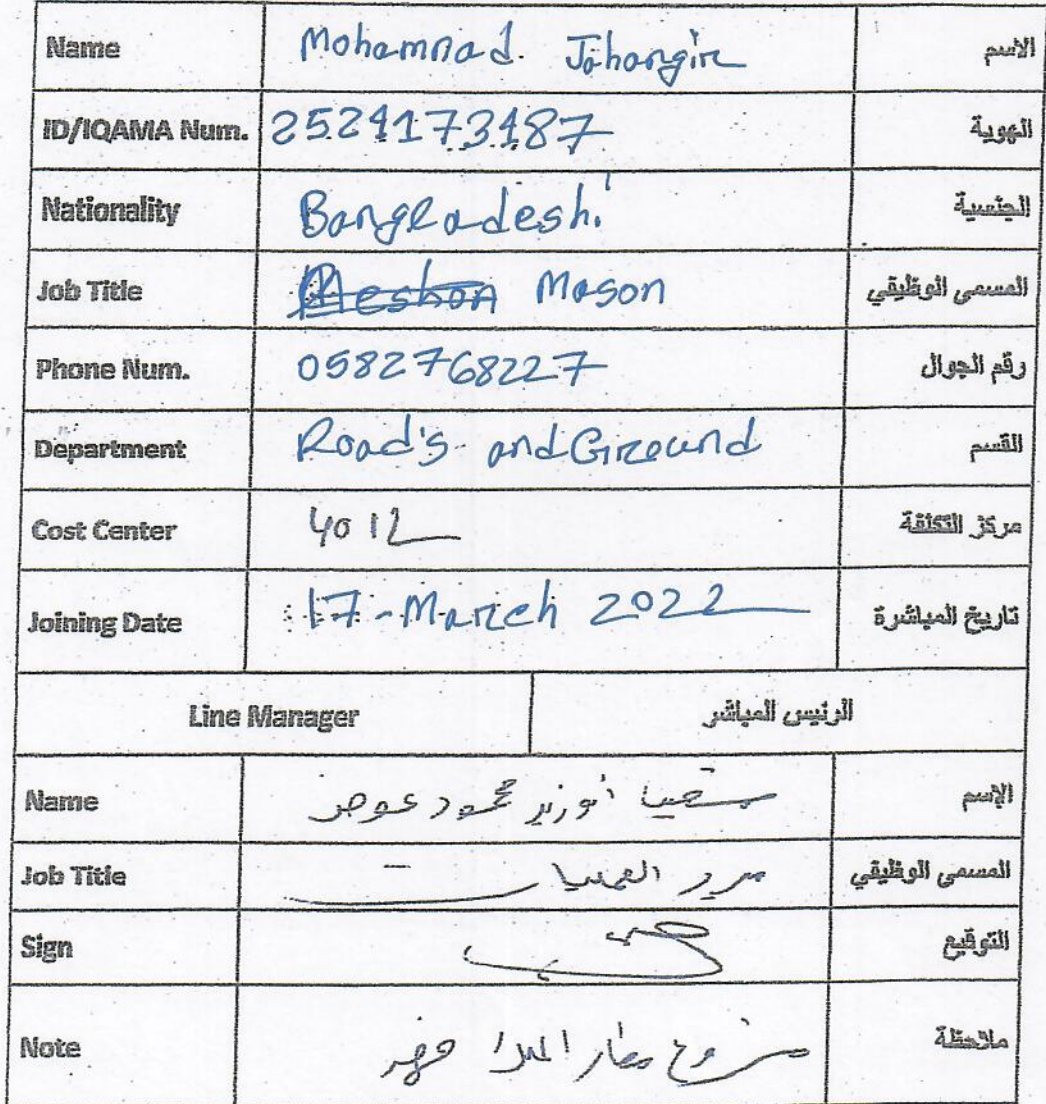 Name Mohamnad. Jahangir الاسم
ID/IQAMA Num. 2524173487 الهوية
Nationality Bangladeshi الجنسية
Job Title Meshon Mason المسمى الوظيقي
Phone Num. 0582768227 رقم الجوال
Department Road's and Ground القسم
Cost Center 4012 مركز التكلفة
Joining Date 17-March 2022 تاريخ المباشرة
Line Manager الرئيس المباشر
Name محمود عوض الإسم
Job Title مدير العمليات المسمى الوظيقي
Sign التوقيع
Note مطار الملك فهد ملاحظة